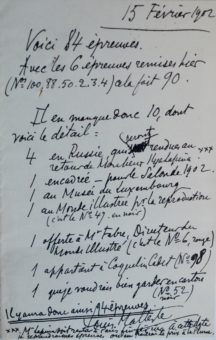 15 Février 1902
Voici 84 épreuves.
Avec les 6 épreuves remises hier
(Nos 100, 88. 50. 2. 3. 4) cela fait 90.
Il en manque donc 10, dont
voici le détail:
4 en Russie, qui seront rendues au
retour de Monsieur xxx
1 encadrée — pour le Salon de 1902.
1 au Musée du Luxembourg
1 au Monde Illustré pr la reproduction
(c'est le No 47. en noir)
1 offerte à Mr Fabre, Directeur du
Monde Illustré (c'est le No 6, rouge)
1 appartient à Coquelin Cadet (No 98)
1 que je voudrais bien garder encore
(No 52 noir)
Il y aura donc ainsi 94 épreuves.
xxx Mr